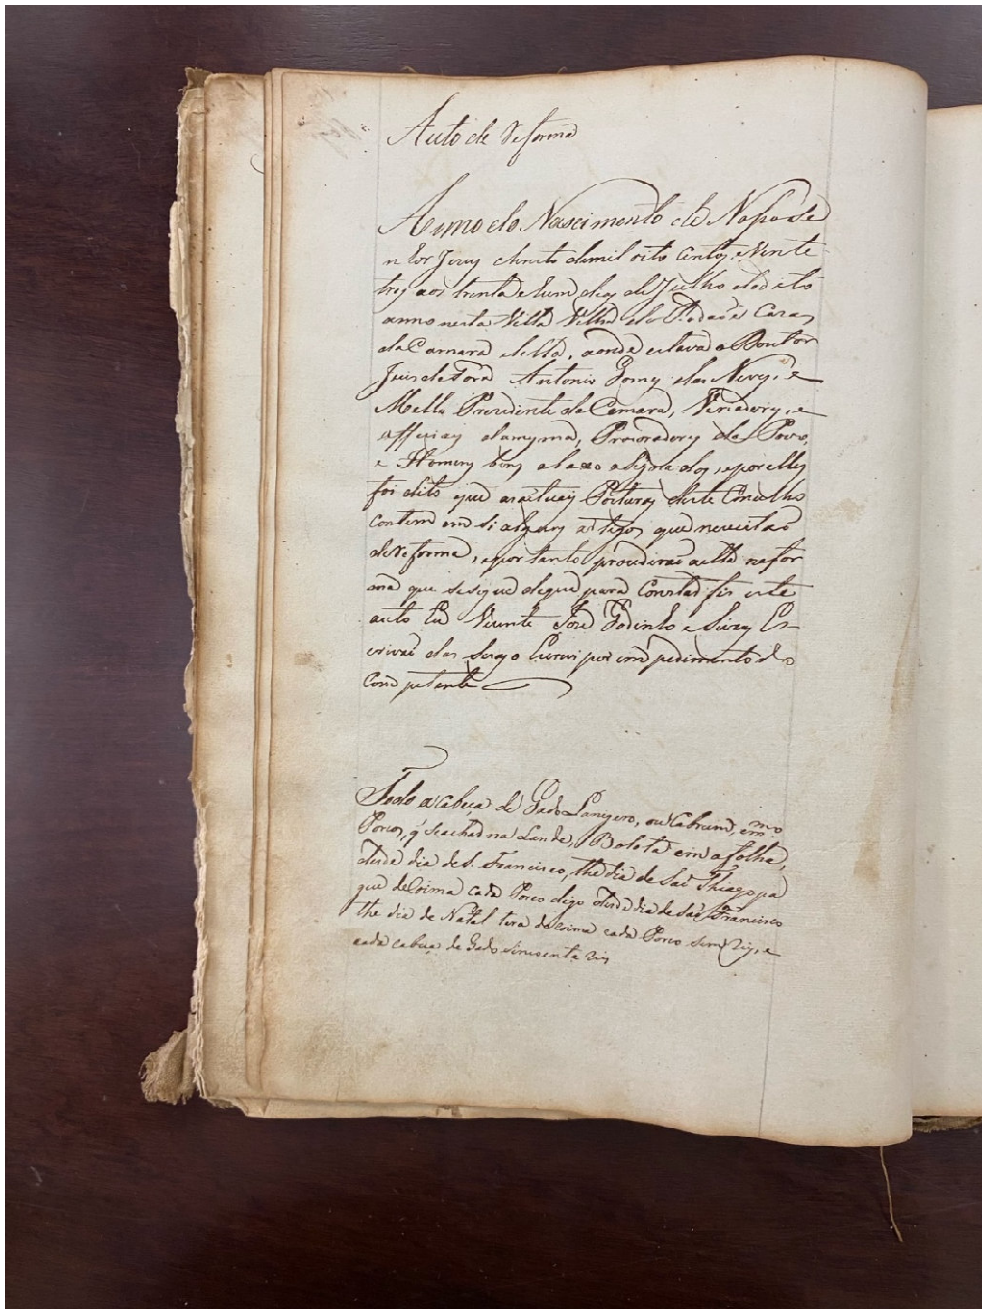 Auto de Reforma
Anno do Nascimento de Nosso Se
nhor Jesus christo de mil oito Centos e Vinte
tres aos trinta e hum dias de Julho do dito
anno nesta Villa de Cazas
da Camara della, aonde estava o Doutor
Juis de fora Antonio Gomes das Neves, e
Mello Prezidente da Camara, Veriadores, e
officiaes damesma, Procuradores do Povo,
e Homens bons abaxo asignados, e por elles
foi dito que as actuaes Posturas deste Concelho
Contem em si alguns artigos que necessitaõ
de reforma, e portanto procederaõ aella nafor
ma que sesegue deque para Constar fis este
auto Eu Vicente José Godinho e Escrivaõ
que o escrevi por impedimento do
Competente
Toda a cabeça de Gado Lanigero, ou Cabrum, e mmo
Porcos, q se achar na Lande, Bolota em a folha,
desde dia de S. Francisco, the dia de Saõ Thiago pa
gue de Coima cada Porco digo desde dia de Saõ Francisco
the dia de Natal terá de Coima cada Porco Cem reis, e
cada cabeça de Gado sincoenta reis